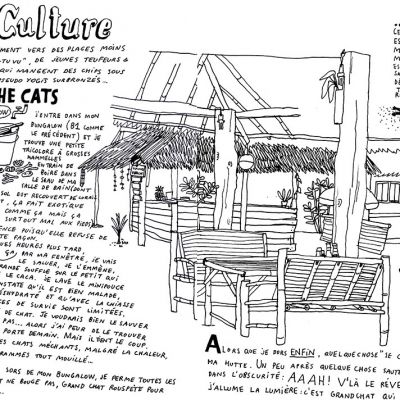 Culture
MENT VERS DES PLACES MOINS
-TU VU", DE JEUNES TEUFEURS &
QUI MANGENT DES CHIPS SOUS
PSEUDO YOGIS SURBRONZÉS...
HE CATS
J'ENTRE DANS MON
BUNGALOW (B1 COMME
LE PRÉCÉDENT) ET JE
TROUVE UNE PETITE
TRICOLORE À GROSSES
MAMELLES
EN TRAIN DE
BOIRE DANS
LE SEAU DE MA
SALLE DE BAIN (DONT
SOL EST RECOUVERT DE CORAIL
ÇA FAIT EXOTIQUE
COMME ÇA MAIS ÇA
SURTOUT MAL AUX PIEDS)
PUISQU'ELLE REFUSE DE
TE FAÇON.
UES HEURES PLUS TARD,
ÇA, PAR MA FENÊTRE, JE VAIS
LE SALUER, JE L'EMMÈNE,
ANDE SOUFFLE SUR LE PETIT QUI
E LE CACA. JE LAVE LE MINIPOUCE
NSTATE QU'IL EST BIEN MALADE,
ÉSHYDRATÉ ET QU'AVEC LA CHIASSE
ES DE SURVIE SONT LIMITÉES,
DE CHAT. JE VOUDRAIS BIEN LE SAUVER
PAS... ALORS J'AI PEUR DE LE TROUVER
PORTE DEMAIN. MAIS ILS ONT LE COUP.
ES CHATS MÉCHANTS, MALGRÉ LA CHALEUR,
RAMMES TOUT MOUILLÉ...
SORS DE MON BUNGALOW, JE FERME TOUTES LES
T NE BOUGE PAS, GRAND CHAT ROUSPÈTE POUR
ALORS QUE JE DORS ENFIN, QUELQUE CHOSE
MA HUTTE. UN PEU APRÈS QUELQUE CHOSE SAUTE
DANS L'OBSCURITÉ: AAAH! V'LÀ LE RÉVE
J'ALLUME LA LUMIÈRE: C'EST GRAND CHAT QUI